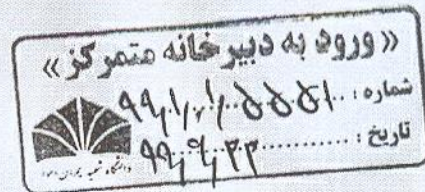 «ورود به دبیرخانه متمرکز»
شماره: ۹۹٫۱٫۱٫۰۵۵۵۱
تاریخ: ۹۹٫۹٫۲۳
دانشگاه شهید چمران اهواز